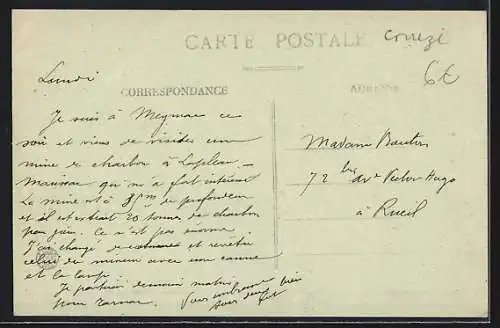 CARTE POSTALE
Corrèze
6€
Lundi
CORRESPONDANCE
ADRESSE
Je suis à Meymac ce
soir et viens de visiter une
mine de charbon à Lapleau -
Maussac qui m'a fort intéressé
La mine est à 85m de profondeur
et il extrait 20 tonnes de charbon
par jour. Ce n'est pas énorme
J'ai changé de et revêtu
celui de mineur avec une canne
et la lampe
Je partirai demain matin
pour
Vous embrasse bien
tous deux
Madame Bouton
72 bis Ave Victor Hugo
à Rueil